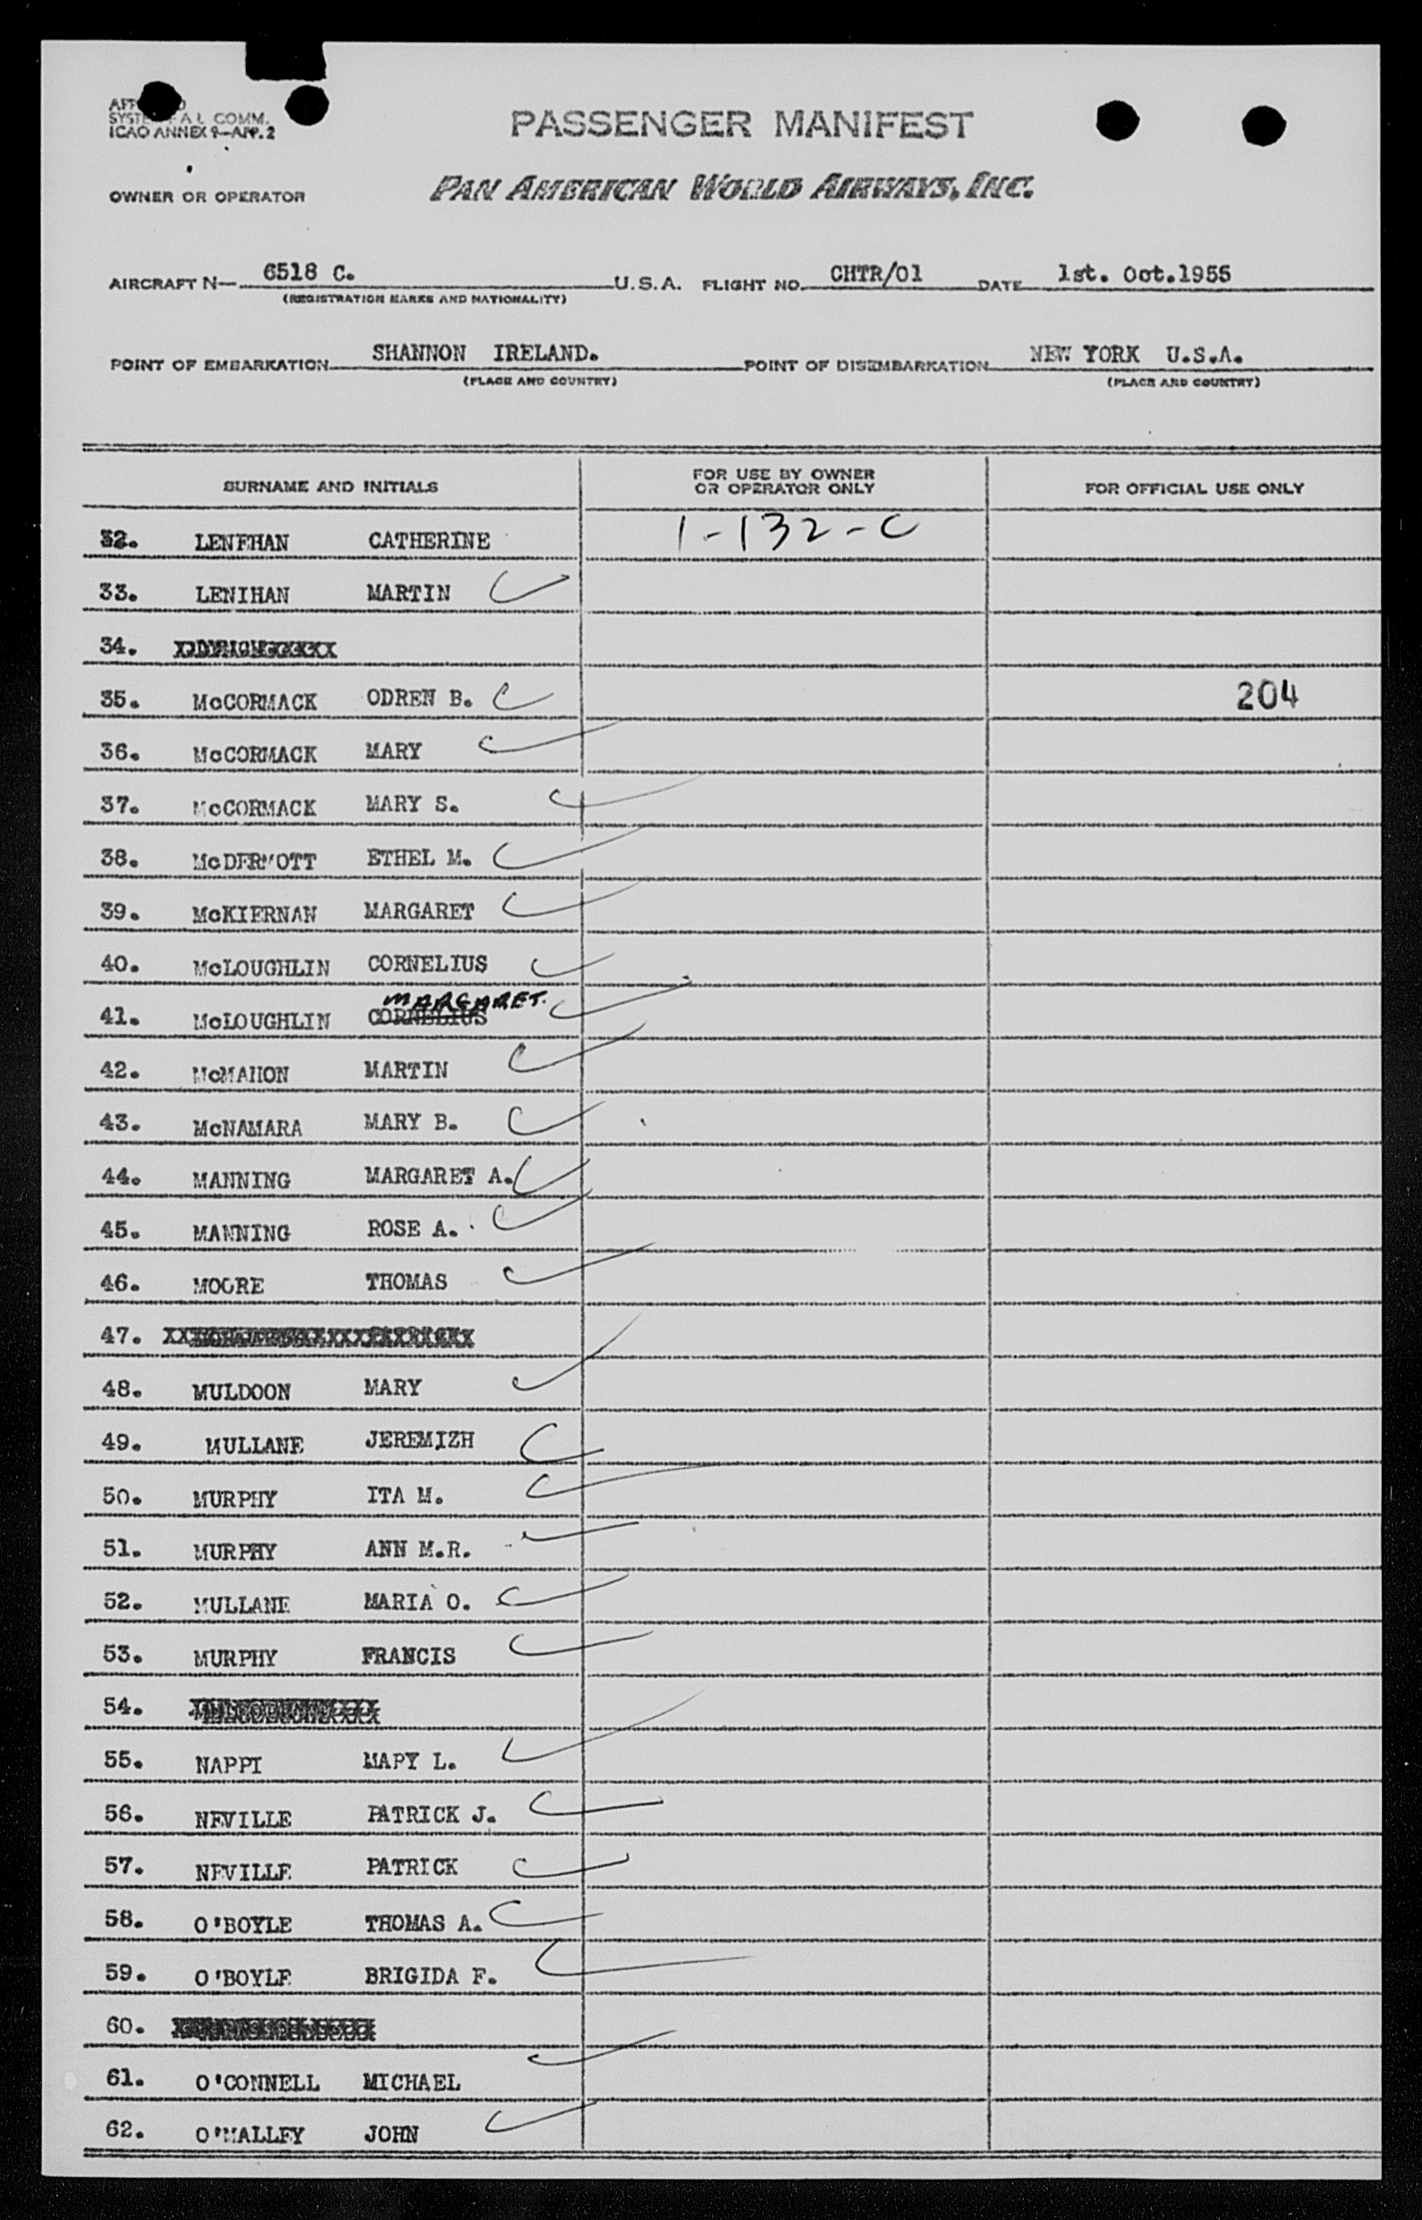 SYSTE AL COMM.
ICAO ANNEX 9-APP. 2
PASSENGER MANIFEST
OWNER OR OPERATOR
PAN AMERICAN WORLD AIRWAYS, INC.
AIRCRAFT N- 6518 C. U.S.A. FLIGHT NO. CHTR/01 DATE 1st. Oct.1955
(REGISTRATION MARKS AND NATIONALITY)
POINT OF EMBARKATION SHANNON IRELAND. POINT OF DISEMBARKATION NEW YORK U.S.A.
(PLACE AND COUNTRY) (PLACE AND COUNTRY)
SURNAME AND INITIALS
FOR USE BY OWNER
OR OPERATOR ONLY
FOR OFFICIAL USE ONLY
32. LENEHAN CATHERINE 1-132-C
33. LENIHAN MARTIN
34.
35. McCORMACK ODREN B. 204
36. McCORMACK MARY
37. McCORMACK MARY S.
38. McDERMOTT ETHEL M.
39. McKIERNAN MARGARET
40. McLOUGHLIN CORNELIUS
MARGARET.
41. McLOUGHLIN CORNELIUS
42. McMAHON MARTIN
43. McNAMARA MARY B.
44. MANNING MARGARET A.
45. MANNING ROSE A.
46. MOORE THOMAS
47.
48. MULDOON MARY
49. MULLANE JEREMIZH
50. MURPHY ITA M.
51. MURPHY ANN M.R.
52. MULLANE MARIA O.
53. MURPHY FRANCIS
54.
55. NAPPI MAPY L.
56. NEVILLE PATRICK J.
57. NEVILLE PATRICK
58. O'BOYLE THOMAS A.
59. O'BOYLE BRIGIDA F.
60.
61. O'CONNELL MICHAEL
62. O'MALLEY JOHN